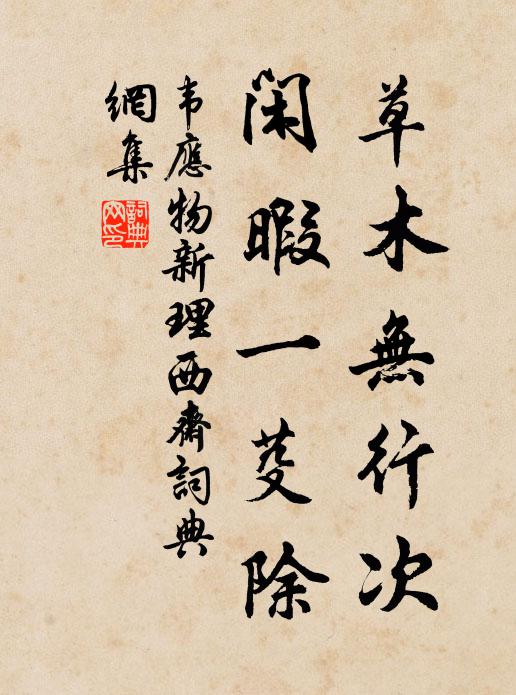 草木無行次
閑暇一芟除
韦應物新理西齋詞典
網集
詞典
网印